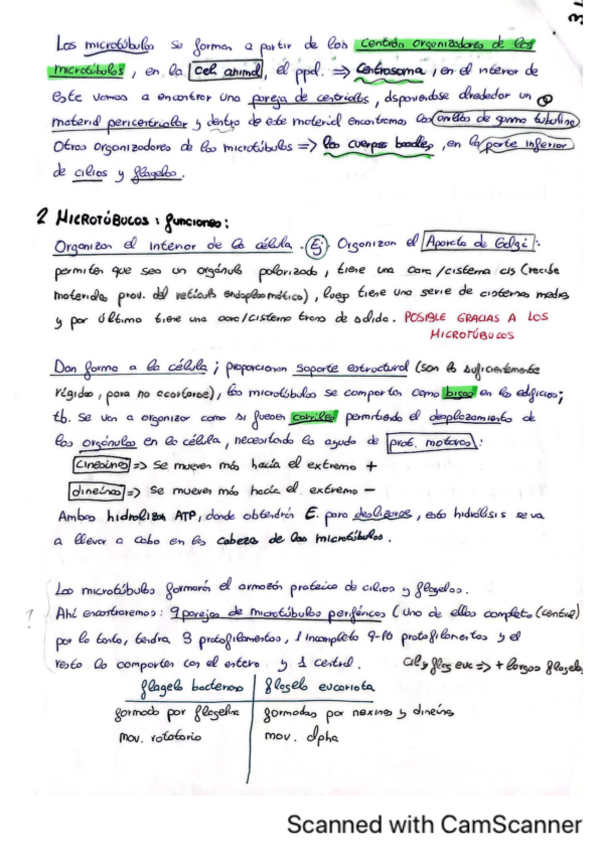 Los microtúbulos se forman a partir de los centros organizadores de los
microtúbulos, en la cél. animal, el ppal. => Centrosoma, en el interior de
este vamos a encontrar una pareja de centriolos, disponiéndose alrededor un
material pericentriolar y dentro de este material encontramos los anillos de gamma tubulina.
Otros organizadores de los microtúbulos => los cuerpos basales, en la parte inferior
de cilios y flagelos.
2 MICROTÚBULOS: funciones:
Organizan el interior de la célula. Ej Organizan el Aparato de Golgi:
permiten que sea un orgánulo polarizado, tiene una cara/cisterna cis (recibe
materiales prov. del retículo endoplasmático), luego tiene una serie de cisternas medias
y por último tiene una cara/cisterna trans de salida. POSIBLE GRACIAS A LOS
MICROTÚBULOS
Dan forma a la célula; proporcionan soporte estructural (son lo suficientemente
rígidos, para no acortarse), los microtúbulos se comportan como vigas en los edificios;
tb. se van a organizar como si fuesen carriles permitiendo el desplazamiento de
los orgánulos en la célula, necesitando la ayuda de prot. motoras:
cinesinas => Se mueven más hacia el extremo +
dineínas => Se mueven más hacia el extremo -
Ambas hidrolizan ATP, donde obtendrán E. para deslizarse, esta hidrólisis se va
a llevar a cabo en la cabeza de los microtúbulos.
Los microtúbulos formarán el armazón proteico de cilios y flagelos.
? Ahí encontraremos: 9 parejas de microtúbulos periféricos (Uno de ellos completo (central)
por lo tanto, tendrá 3 protofilamentos, 1 incompleto 9-10 protofilamentos y el
resto lo comparten con el entero y 1 central. cil y flag euc => + largos flagelos
flagelo bacteriano flagelo eucariota
formado por flagelina formados por nexinas y dineína
mov. rotatorio mov.
Scanned with CamScanner